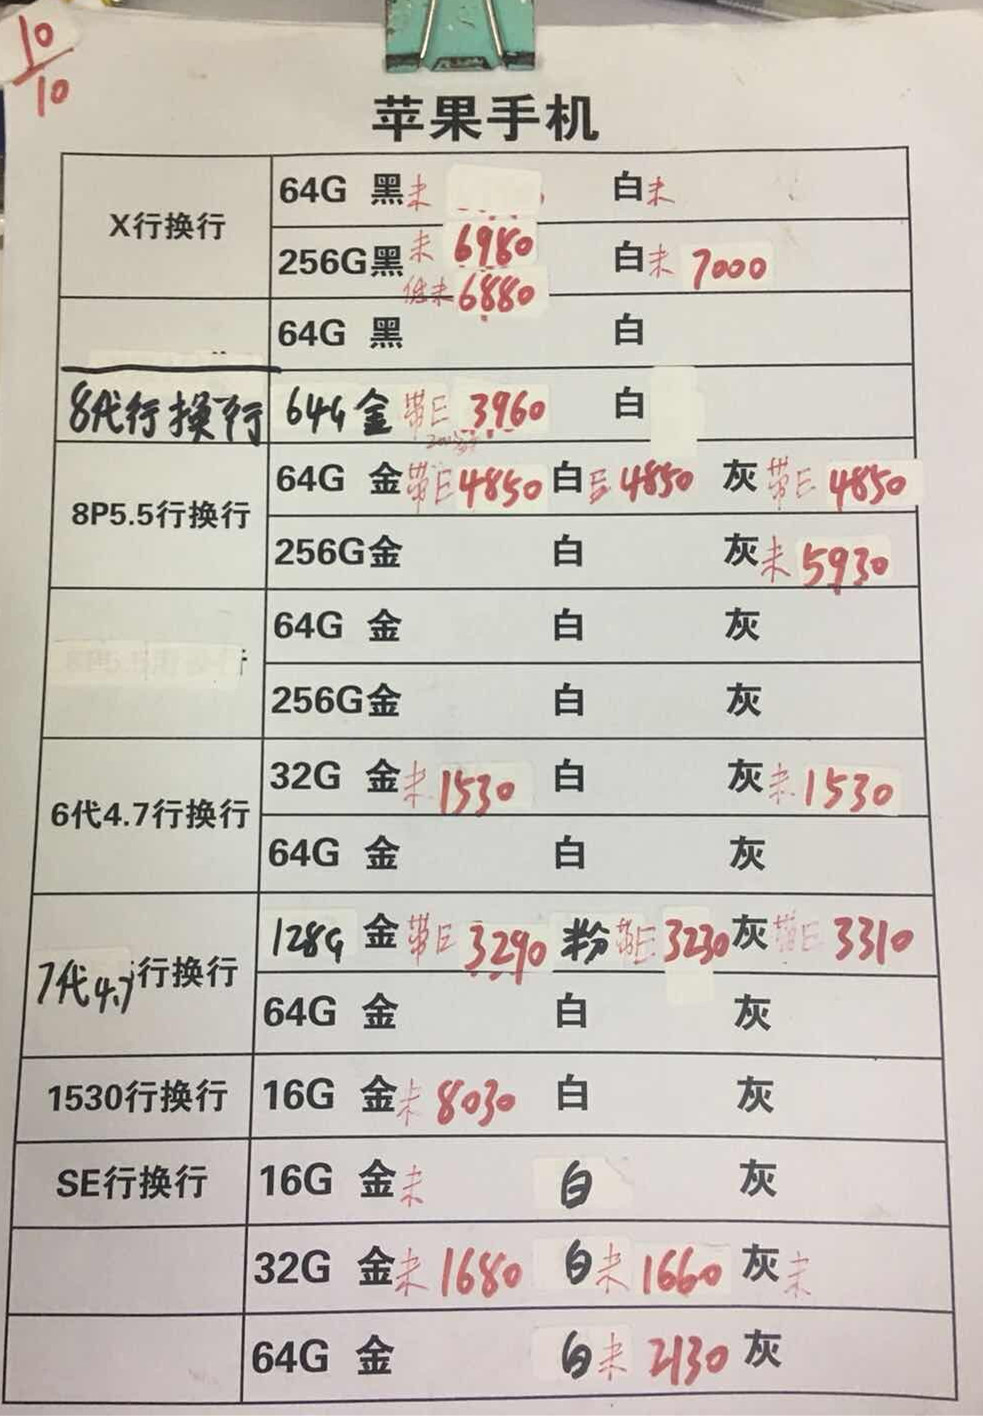 10/10
苹果手机
X行换行 64G 黑未 白未
256G黑未 6980 白未 7000
低未6880
64G 黑 白
8代行换行 64G 金 带E 3960 白
8P5.5行换行 64G 金带E4850 白E 4850 灰带E 4850
256G金 白 灰未 5930
64G 金 白 灰
256G金 白 灰
6代4.7行换行 32G 金未1530 白 灰未1530
64G 金 白 灰
7代4.7行换行 128G 金带E 3290 粉带E3230 灰带E 3310
64G 金 白 灰
1530行换行 16G 金未 8030 白 灰
SE行换行 16G 金未 白 灰
32G 金未 1680 白未 1660 灰未
64G 金 白未 2130 灰